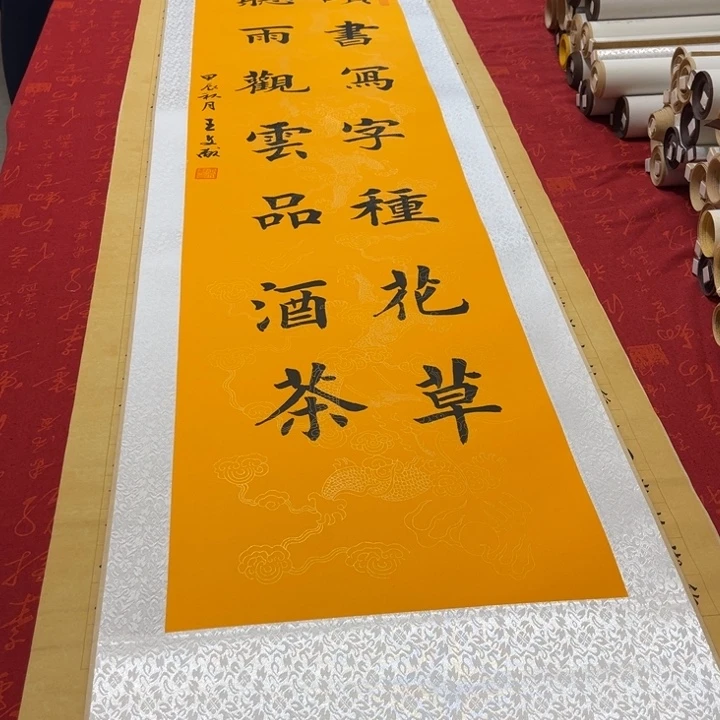 讀書寫字種花草
聽雨觀雲品酒茶
甲辰秋月 王